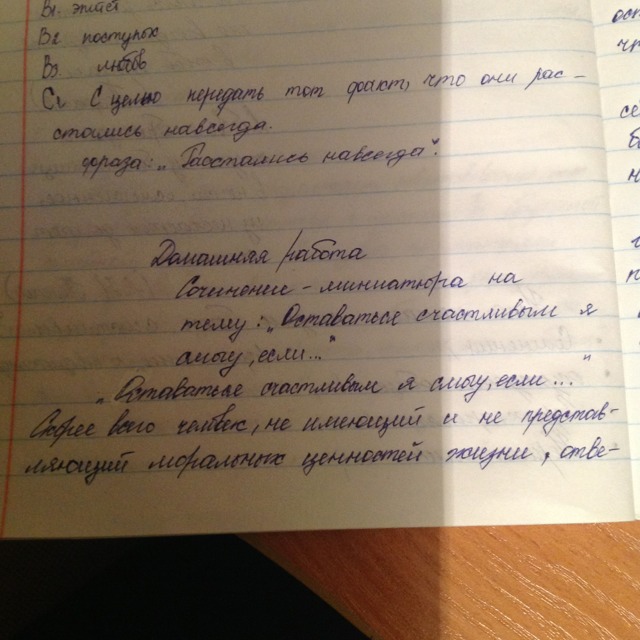 В1. эпитет
В2 поступок
В3 любовь
С1 С целью передать тот факт, что они рас-
стались навсегда.
фраза: „Расстались навсегда".
Домашняя работа
Сочинение - миниатюра на
тему: „Оставаться счастливым я
смогу, если..."
„Оставаться счастливым я смогу, если..."
Скорее всего человек, не имеющий и не представ-
ляющий моральных ценностей жизни, отве-
ост
чт
се
б
н
п